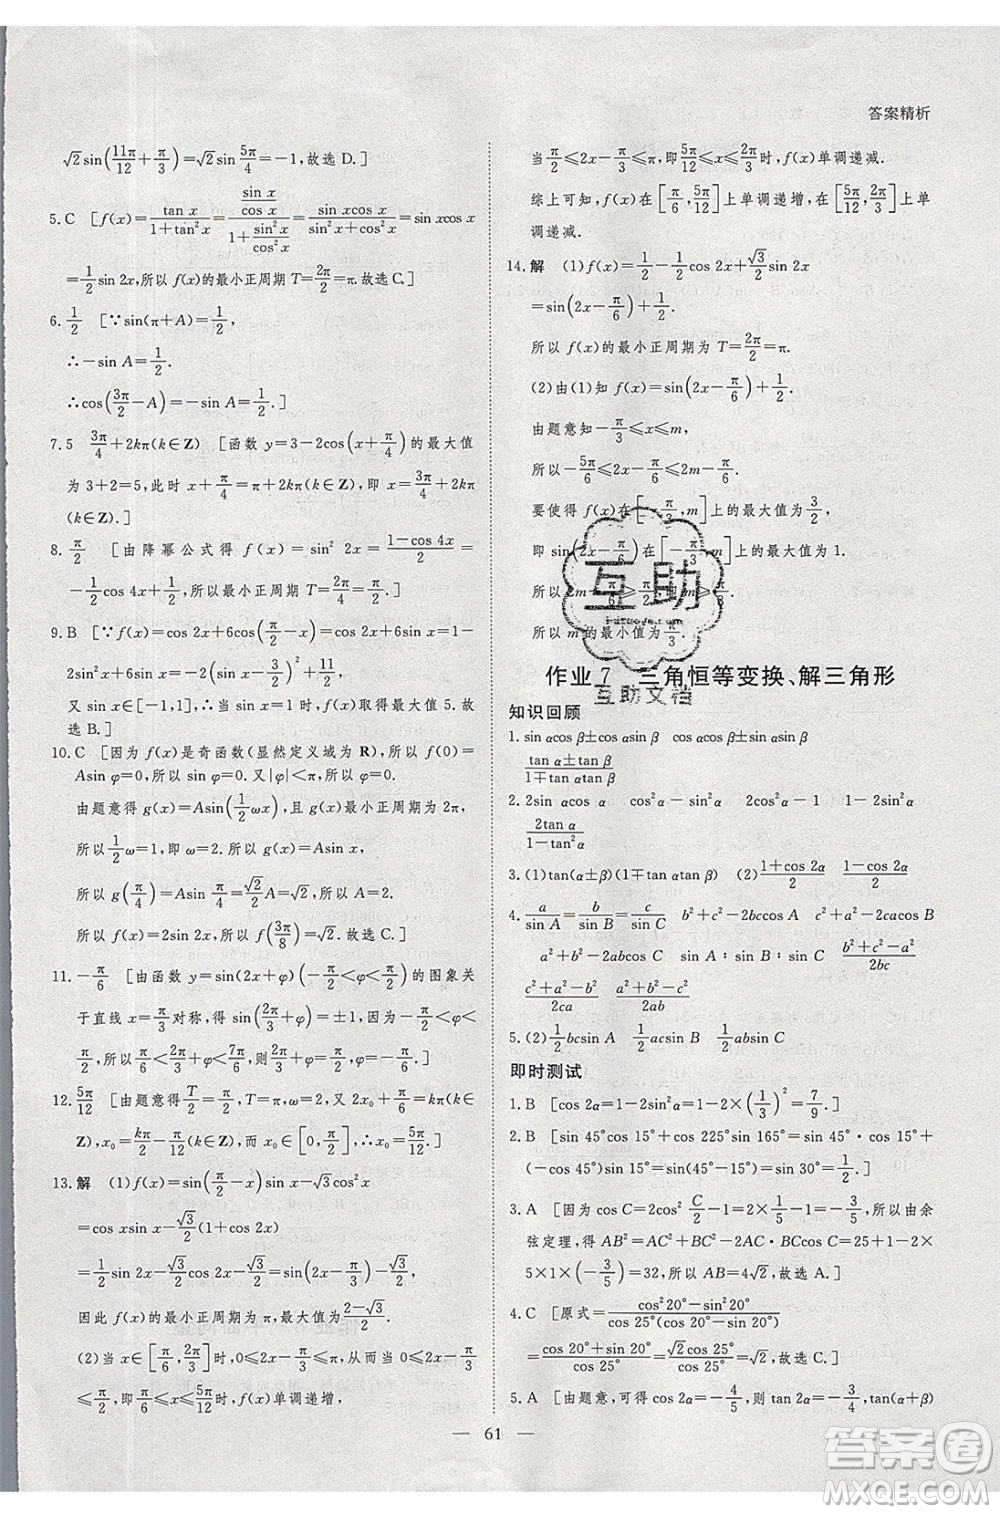 答案精析
√2sin(11π/12+π/3)=√2sin 5π/4=-1,故选 D.]
5.C [f(x)=tan x/(1+tan²x)=(sin x/cos x)/(1+sin²x/cos²x)=sin xcos x/(cos²x+sin²x)=sin xcos x
=1/2 sin 2x,所以 f(x)的最小正周期 T=2π/2=π.故选 C.]
6.1/2 [∵sin(π+A)=1/2,
∴-sin A=1/2.
∴cos(3π/2-A)=-sin A=1/2.]
7.5 3π/4+2kπ(k∈Z) [函数 y=3-2cos(x+π/4)的最大值
为 3+2=5,此时 x+π/4=π+2kπ(k∈Z),即 x=3π/4+2kπ
(k∈Z).]
8.π/2 [由降幂公式得 f(x)=sin² 2x=(1-cos 4x)/2=
-1/2cos 4x+1/2,所以最小正周期 T=2π/4=π/2.]
9.B [∵f(x)=cos 2x+6cos(π/2-x)=cos 2x+6sin x=1-
2sin²x+6sin x=-2(sin x-3/2)²+11/2,
又 sin x∈[-1,1],∴当 sin x=1时,f(x)取得最大值 5.故
选 B.]
10.C [因为 f(x)是奇函数(显然定义域为 R),所以 f(0)=
Asin φ=0,所以 sin φ=0.又|φ|<π,所以 φ=0.
由题意得 g(x)=Asin(1/2ωx),且 g(x)最小正周期为 2π,
所以 1/2ω=1,即 ω=2.所以 g(x)=Asin x,
所以 g(π/4)=Asin π/4=√2/2A=√2,所以 A=2.
所以 f(x)=2sin 2x,所以 f(3π/8)=√2.故选 C.]
11.-π/6 [由函数 y=sin(2x+φ)(-π/2<φ<π/2)的图象关
于直线 x=π/3对称,得 sin(2π/3+φ)=±1,因为-π/2<φ<
π/2,所以 π/6<2π/3+φ<7π/6,则 2π/3+φ=π/2,φ=-π/6.]
12.5π/12 [由题意得 T/2=π/2,T=π,ω=2.又 2x₀+π/6=kπ(k∈
Z),x₀=kπ/2-π/12(k∈Z),而 x₀∈[0,π/2],∴x₀=5π/12.]
13.解 (1)f(x)=sin(π/2-x)sin x-√3cos²x
=cos xsin x-√3/2(1+cos 2x)
=1/2sin 2x-√3/2cos 2x-√3/2=sin(2x-π/3)-√3/2,
因此 f(x)的最小正周期为 π,最大值为(2-√3)/2.
(2)当 x∈[π/6,2π/3]时,0≤2x-π/3≤π,从而当 0≤2x-
π/3≤π/2,即π/6≤x≤5π/12时,f(x)单调递增,
当π/2≤2x-π/3≤π,即5π/12≤x≤2π/3时,f(x)单调递减.
综上可知,f(x)在[π/6,5π/12]上单调递增,在[5π/12,2π/3]上单
调递减.
14.解 (1)f(x)=1/2-1/2cos 2x+√3/2sin 2x
=sin(2x-π/6)+1/2,
所以 f(x)的最小正周期为 T=2π/2=π.
(2)由(1)知 f(x)=sin(2x-π/6)+1/2,
由题意知-π/3≤x≤m,
所以-5π/6≤2x-π/6≤2m-π/6.
要使得 f(x)在[-π/3,m]上的最大值为3/2,
即 sin(2x-π/6)在[-π/3,m]上的最大值为 1.
所以 2m-π/6≥π/2,即 m≥π/3.
所以 m 的最小值为π/3.
互助
互助文档
作业 7 三角恒等变换、解三角形
知识回顾
1.sin αcos β±cos αsin β cos αcos β∓sin αsin β
(tan α±tan β)/(1∓tan αtan β)
2.2sin αcos α cos²α-sin²α 2cos²α-1 1-2sin²α
2tan α/(1-tan²α)
3.(1)tan(α±β)(1∓tan αtan β) (2)(1+cos 2α)/2 (1-cos 2α)/2
4.a/sin A=b/sin B=c/sin C b²+c²-2bccos A c²+a²-2cacos B
a²+b²-2abcos C sin A∶sin B∶sin C (b²+c²-a²)/2bc
(c²+a²-b²)/2ca (a²+b²-c²)/2ab
5.(2)1/2bcsin A 1/2acsin B 1/2absin C
即时测试
1.B [cos 2α=1-2sin²α=1-2×(1/3)²=7/9.]
2.B [sin 45°cos 15°+cos 225°sin 165°=sin 45°cos 15°+
(-cos 45°)sin 15°=sin(45°-15°)=sin 30°=1/2.]
3.A [因为 cos C=2cos² C/2-1=2×1/5-1=-3/5,所以由余
弦定理,得 AB²=AC²+BC²-2AC·BCcos C=25+1-2×
5×1×(-3/5)=32,所以 AB=4√2,故选 A.]
4.C [原式=(cos²20°-sin²20°)/(cos 25°(cos 20°-sin 20°))
=(cos 20°+sin 20°)/cos 25°=√2cos 25°/cos 25°=√2.]
5.A [由题意,可得 cos 2α=-4/5,则 tan 2α=-3/4,tan(α+β)
— 61 —
答案圈
MXQE.COM